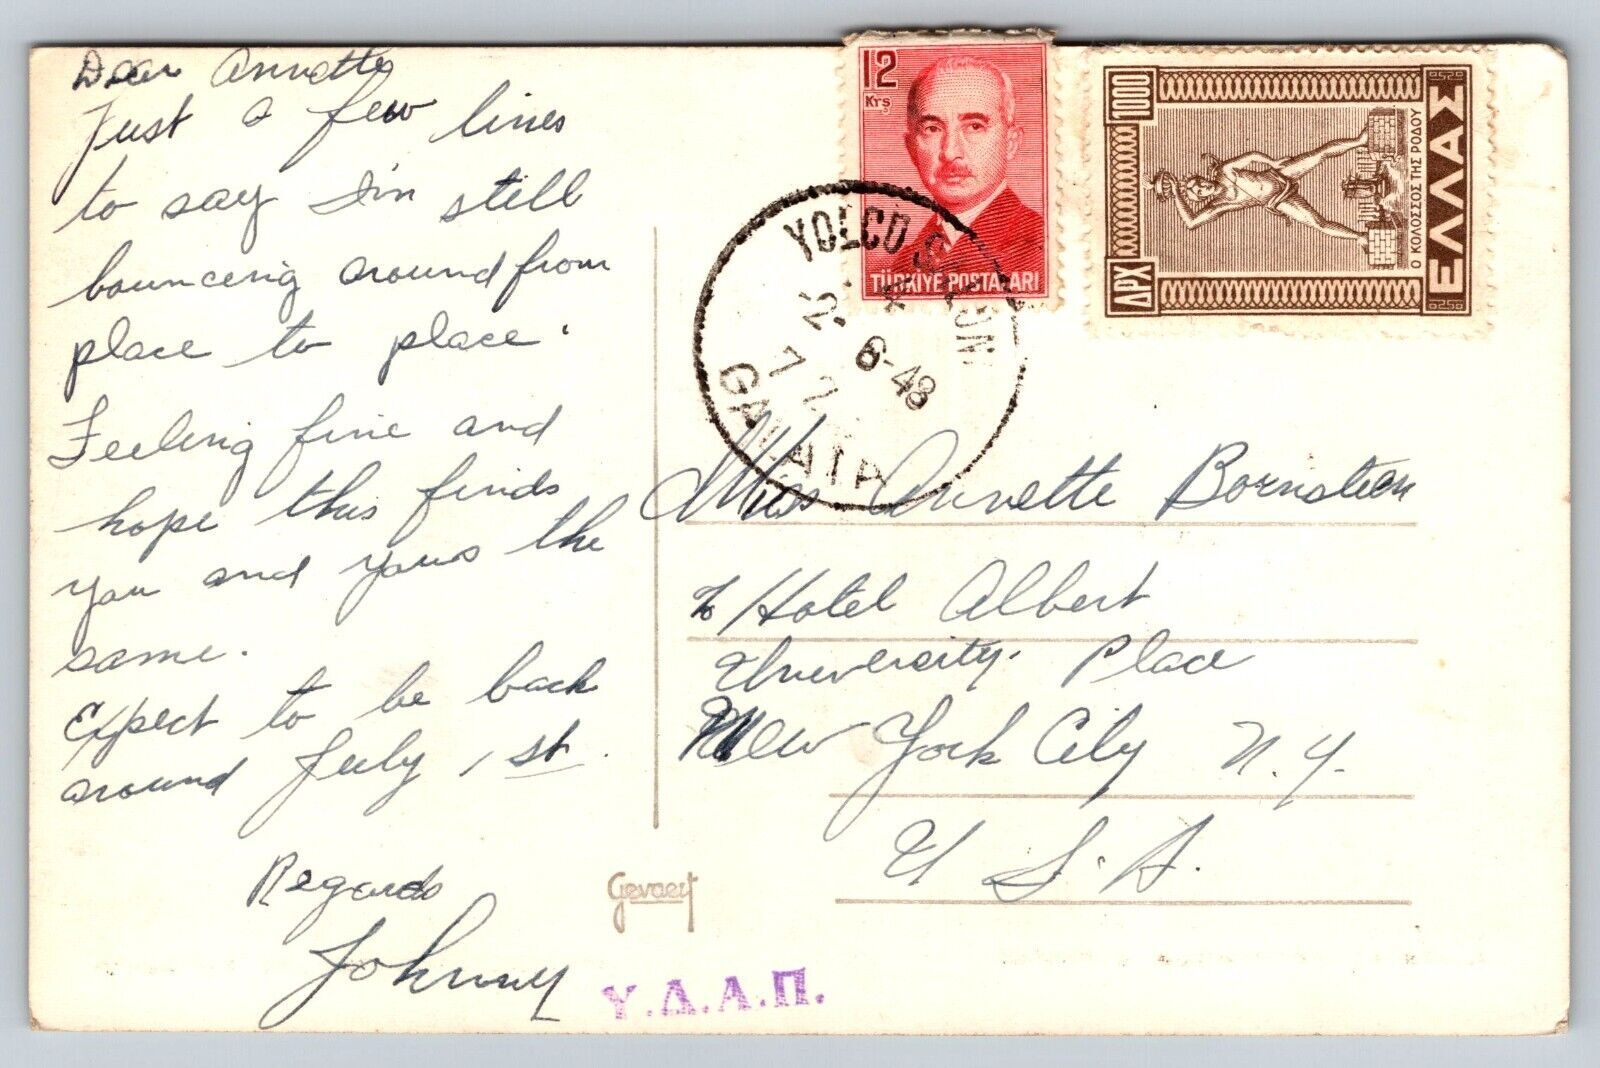 Dear Annette
Just a few lines
to say I'm still
bouncing around from
place to place.
Feeling fine and
hope this finds
you and yours the
same.
Expect to be back
around July 1st.
Regards
Johnny
12
Krş
TÜRKİYE POSTALARI
ΔΡΧ 1000
Ο ΚΟΛΟΣΣΟΣ ΤΗΣ ΡΟΔΟΥ
ΕΛΛΑΣ
YOLCU SALON
6-48
GALATA
Miss Annette Bornsteen
% Hotel Albert
University Place
New York City N.Y.
U S.A.
Gevaert
Υ.Δ.Α.Π.